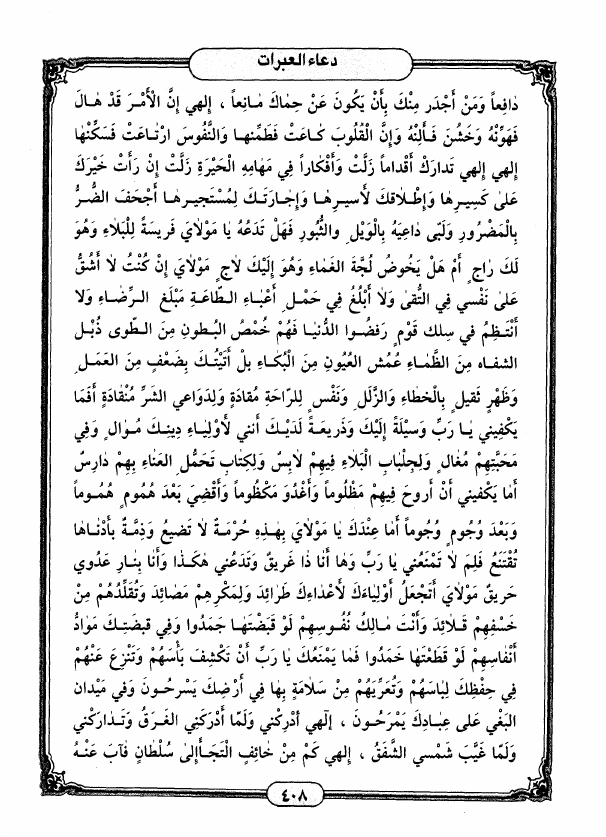 دعاء العبرات
دافِعاً وَمَنْ أَجْدَر مِنْكَ بِأَنْ يَكُونَ عَنْ حِماكَ مانِعاً ، إلهي إنَّ الْأَمْرَ قَدْ هالَ
فَهَوِّنْهُ وَخَشُنَ فَأَلِنْهُ وَإِنَّ الْقُلُوبَ كاعَتْ فَطَمِّنْها وَالنُّفُوسَ ارْتاعَتْ فَسَكِّنْها
إلهي إلهي تَدارَكْ أَقْداماً زَلَّتْ وَأَفْكاراً فِي مَهامِهِ الْحَيْرَةِ زَلَّتْ إنْ رَأَتْ خَيْرَكَ
عَلى كَسِيرِها وَإِطْلاقِكَ لأَسيرِها وَإِجارَتَكَ لِمُسْتَجيرِها أَجْحَفَ الضُّر
بِالْمَضْرُورِ وَلَبّى داعِيَهُ بِالْوَيْلِ وَالثُّبُورِ فَهَلْ تَدَعُهُ يا مَوْلايَ فَريسَةً لِلْبَلاءِ وَهُوَ
لَكَ راجٍ أَمْ هَلْ يَخُوضُ لُجَّةَ الغَماءِ وَهُوَ إِلَيْكَ لاجٍ مَوْلايَ إنْ كُنْتُ لا أَشُقُّ
عَلى نَفْسي فِي التُّقى وَلا أَبْلُغُ فِي حَمْلِ أَعْباءِ الطّاعَةِ مَبْلَغَ الرِّضاءِ وَلا
أَنْتَظِمُ في سِلكِ قَوْمٍ رَفَضُوا الدُّنْيا فَهُمْ خُمْصُ البُطونِ مِنَ الطّوى ذُبْل
الشفاه مِنَ الظَّماءِ عُمُش العُيُونِ مِنَ الْبُكاءِ بلْ أَتَيْتُكَ بِضَعْفٍ مِنَ العَمَلِ
وَظَهْرٍ ثَقيلٍ بِالْخَطاءِ وَالزَّلَلِ وَنَفْسٍ لِلرّاحَةِ مُقادَةٍ وَلِدَواعي الشَرِّ مُنْقادَةٍ أَفَما
يَكْفيني يا رَبِّ وَسيلَةً إِلَيْكَ وَذَريعَةً لَدَيْكَ أَنني لأَوْلِياءِ دينِكَ مُوالٍ وَفِي
مَحَبَّتِهِمْ مُغالٍ وَلِجِلْبابِ الْبَلاءِ فيهِمْ لابِسٌ وَلِكِتابِ تَحَمُّلِ العَناءِ بِهِمْ دارِسٌ
أَما يَكْفيني أَنْ أَروحَ فِيهِمْ مَظْلُوماً وَأَغْدُوَ مَكْظُوماً وَأَقْضِيَ بَعْدَ هُمُومٍ هُمُوماً
وَبَعْدَ وُجُومٍ وُجُوماً أَما عِنْدَكَ يا مَوْلايَ بِهذِهِ حُرْمَةٌ لا تَضيعُ وَذِمَّةٌ بِأَدْناها
تُقْتَنَعُ فَلِمَ لا تَمْنَعُني يا رَبِّ وَها أَنا ذا غَريقٌ وَتَدَعُني هكَذا وَأَنا بِنارِ عَدُوي
حَريقٌ مَوْلايَ أَتَجْعَلُ أَوْلِياءَكَ لأَعْداءكَ طَرائِدَ وَلِمَكْرِهِمْ مَصائِدَ وَتُقَلِّدُهُمْ مِنْ
خَسْفِهِمْ قَلائِدَ وَأَنْتَ مالِكُ نُفُوسِهِمْ لَوْ قَبَضْتَها جَمَدُوا وَفِي قبضَتِكَ مَوادُّ
أَنْفاسِهِمْ لَوْ قَطَعْتَها خَمَدُوا فَما يَمْنَعُكَ يا رَبِّ أَنْ تَكْشِفَ بَأْسَهُمْ وَتَنْزِعَ عَنْهُمْ
فِي حِفْظِكَ لِباسَهُمْ وَتُعَرِّيَهُمْ مِنْ سَلامَةٍ بِها فِي أَرْضِكَ يَسْرحُونَ وَفي مَيْدان
البَغْي عَلى عِبادِكَ يَمْرَحُونَ ، إلهي أَدْرِكْني وَلَمّا أَدْرَكَني الغَرَقُ وَتَدارَكْني
وَلَمّا غَيَّبَ شَمْسي الشَّفَقُ ، إلهي كَمْ مِنْ خائِفٍ الْتَجَأ إِلىٰ سُلْطانٍ فَآبَ عَنْهُ
٤٠٨